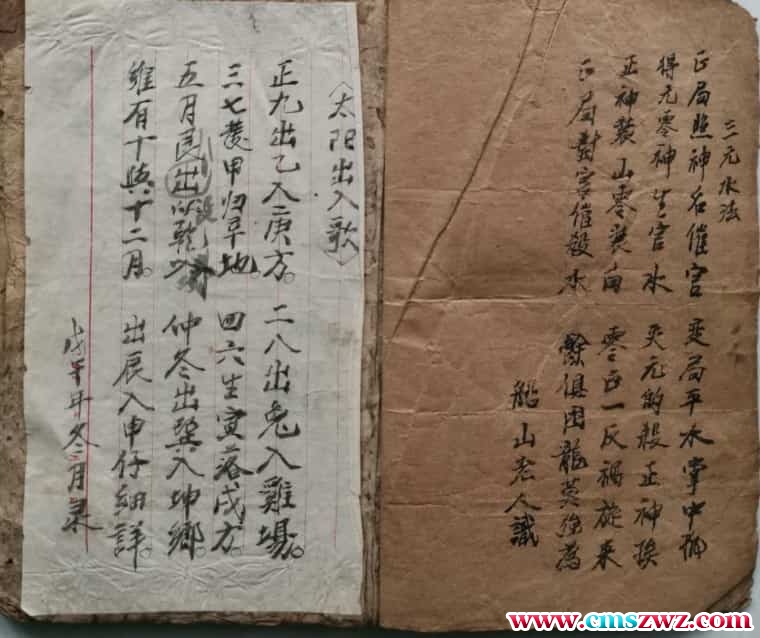 三元水法
正局照神名催官 变局平水掌中
得元零神生官水 失元的殺正神挨
正神裝山零裝向 零正一反禍旋来
正局對宮催殺水 餘俱因龍莫強為
船山老人識
〈太阳出入歌〉
正九出乙入庚方。二八出兔入雞場。
三七發甲归辛地。四六生寅落戌方。
五月艮出以乾 仲冬出巽入坤鄉。
維有十與十二月。出辰入申仔細詳。
戊午年冬二月录
www.cmszwz.com